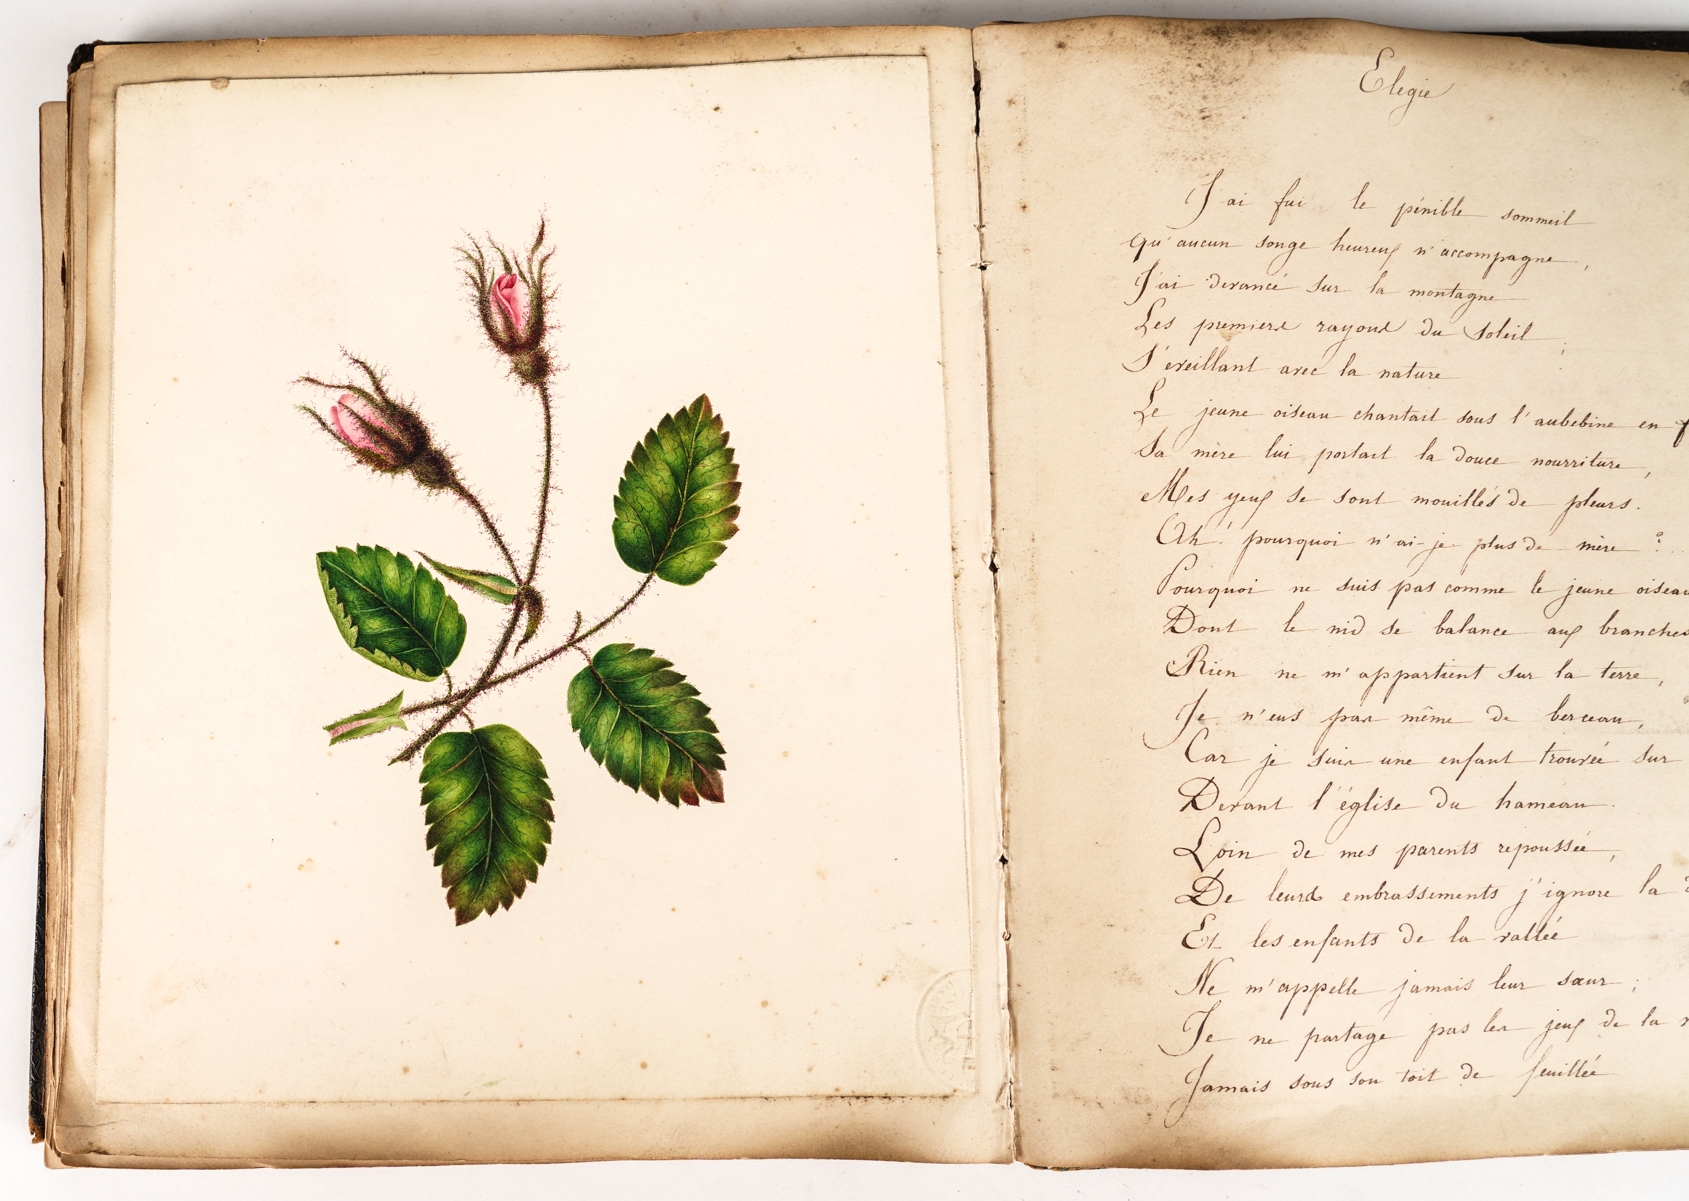 Elegie
J'ai fui le pénible sommeil
qu'aucun songe heureux n'accompagne,
J'ai devancé sur la montagne
Les premiers rayons du Soleil ;
S'éveillant avec la nature
Le jeune oiseau chantait sous l'aubebine en
Sa mère lui portait la douce nourriture,
Mes yeux se sont mouillés de pleurs.
Ah ! pourquoi n'ai-je plus de mère ?..
Pourquoi ne suis pas comme le jeune oiseau
Dont le nid se balance aux branches
Rien ne m'appartient sur la terre,
Je n'eus pas même de berceau,
Car je suis une enfant trouvée sur
Devant l'église du hameau.
Loin de mes parents repoussée,
De leurs embrassements j'ignore la
Et les enfants de la vallée
Ne m'appelle jamais leur sœur ;
Je ne partage pas les jeux de la
Jamais sous son toit de feuillée